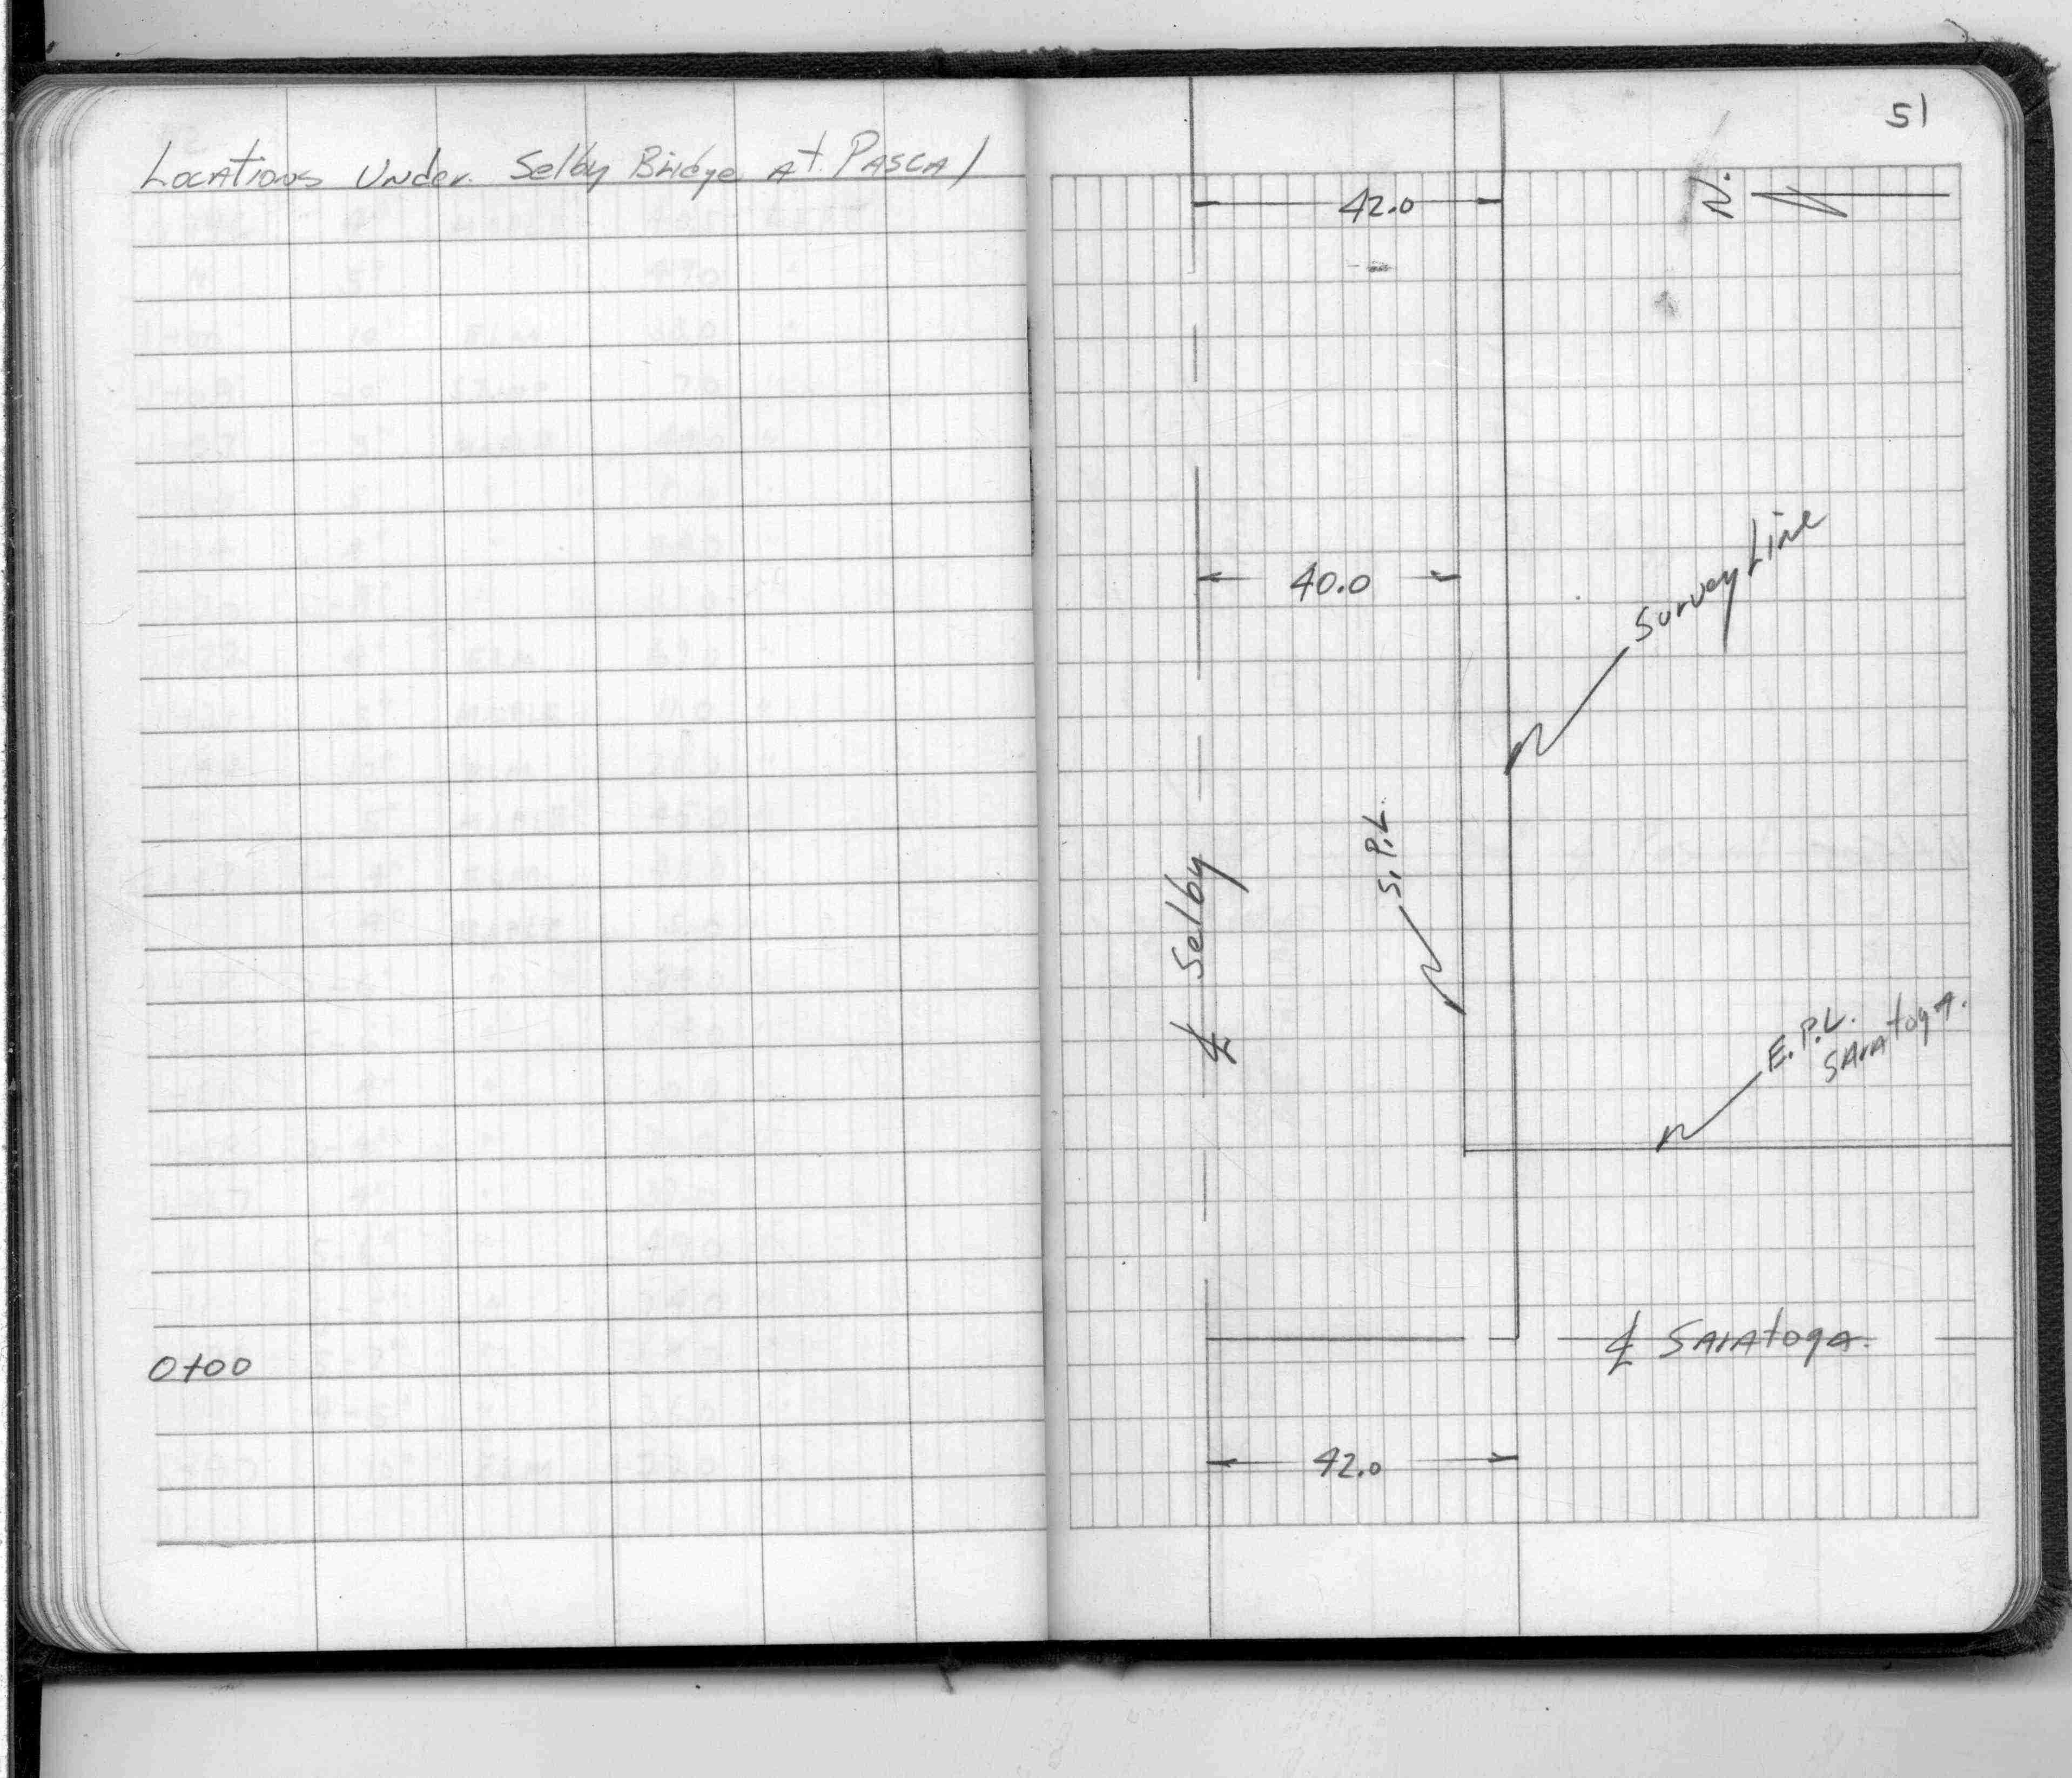 Locations Under Selby Bridge At. PASCAL
0+00
51
42.0
N.
40.0
Survey Line
S. P.L.
℄ Selby
E. P.L.
Saratoga.
℄ Saratoga.
42.0